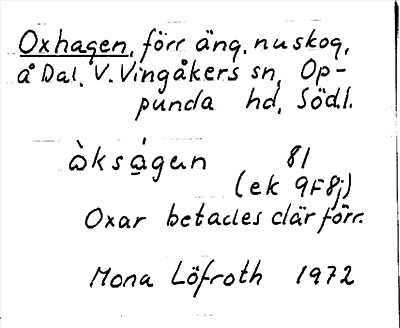 Oxhagen, förr äng, nu skog,
å Dal, V. Vingåkers sn, Op-
punda hd, Södl.
ὰksågαn 81
(ek 9F8j)
Oxar betades där förr.
Mona Löfroth 1972